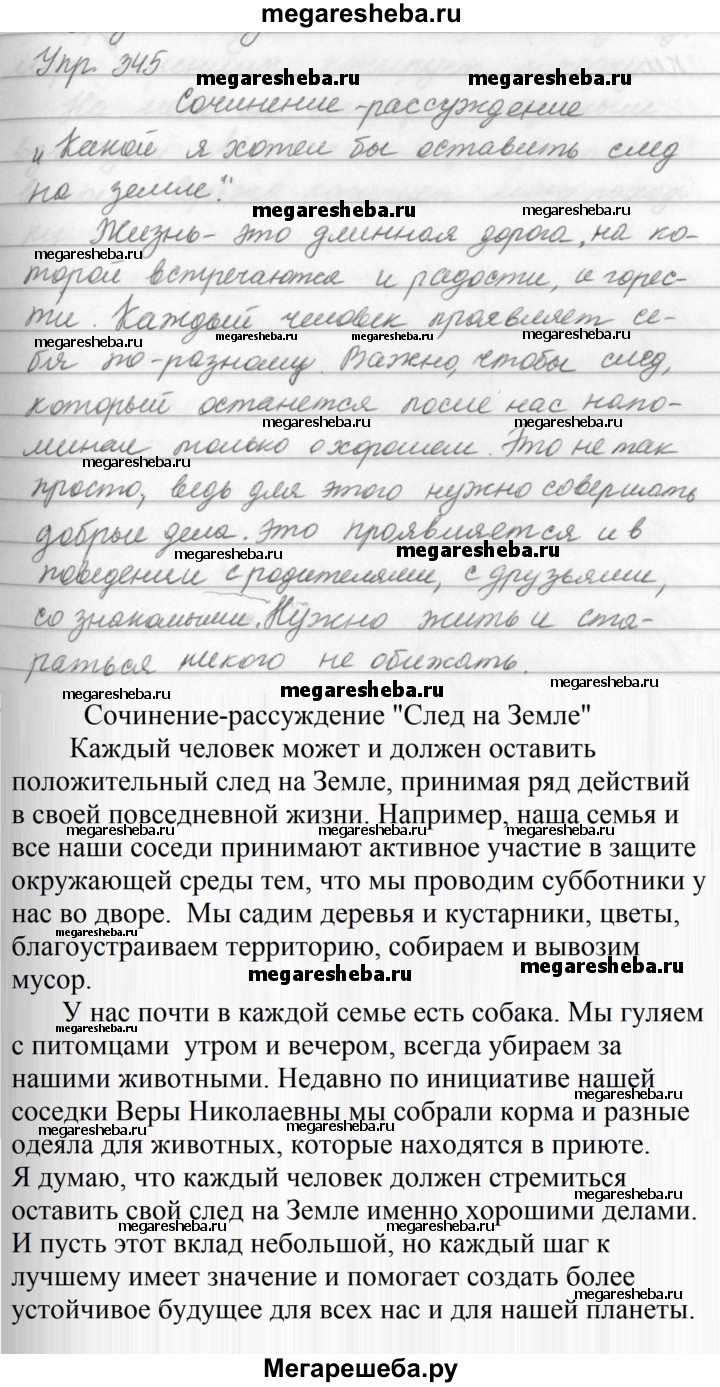 megaresheba.ru
Упр. 345
megaresheba.ru
megaresheba.ru
Сочинение-рассуждение
„Какой я хотел бы оставить след
на земле."
megaresheba.ru
megaresheba.ru
Жизнь - это длинная дорога, на ко-
megaresheba.ru
megaresheba.ru
торой встречаются и радости, и горес-
ти. Каждый человек проявляет се-
megaresheba.ru
megaresheba.ru
megaresheba.ru
megaresheba.ru
бя по-разному. Важно, чтобы след,
который останется после нас напо-
megaresheba.ru
megaresheba.ru
минал только о хорошем. Это не так
megaresheba.ru
просто, ведь для этого нужно совершать
добрые дела. Это проявляется и в
megaresheba.ru
megaresheba.ru
поведении с родителями, с друзьями,
со знакомыми. Нужно жить и ста-
раться никого не обижать.
megaresheba.ru
megaresheba.ru
megaresheba.ru
Сочинение-рассуждение "След на Земле"
Каждый человек может и должен оставить
положительный след на Земле, принимая ряд действий
в своей повседневной жизни. Например, наша семья и
megaresheba.ru
megaresheba.ru
megaresheba.ru
все наши соседи принимают активное участие в защите
окружающей среды тем, что мы проводим субботники у
нас во дворе. Мы садим деревья и кустарники, цветы,
megaresheba.ru
благоустраиваем территорию, собираем и вывозим
megaresheba.ru
megaresheba.ru
мусор.
У нас почти в каждой семье есть собака. Мы гуляем
megaresheba.ru
с питомцами утром и вечером, всегда убираем за
нашими животными. Недавно по инициативе нашей
соседки Веры Николаевны мы собрали корма и разные
megaresheba.ru
megaresheba.ru
megaresheba.ru
одеяла для животных, которые находятся в приюте.
Я думаю, что каждый человек должен стремиться
megaresheba.ru
оставить свой след на Земле именно хорошими делами.
megaresheba.ru
megaresheba.ru
И пусть этот вклад небольшой, но каждый шаг к
лучшему имеет значение и помогает создать более
устойчивое будущее для всех нас и для нашей планеты.
Мегарешеба.ру